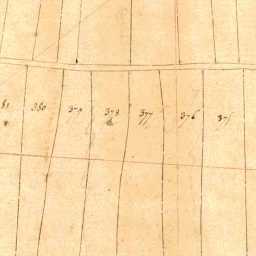 81 380 379 378 377 376 375